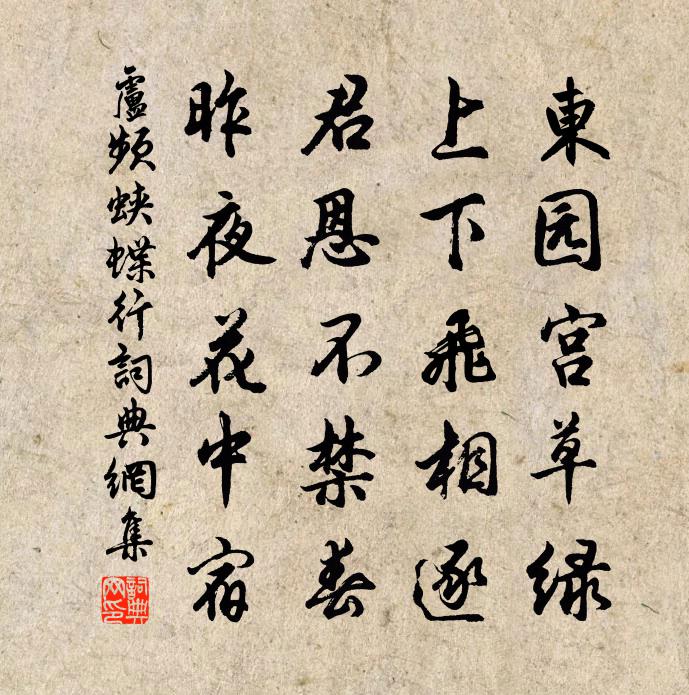 東园宫草绿
上下飛相逐
君恩不禁春
昨夜花中宿
盧頻蛱蝶行詞典網集
詞典网印